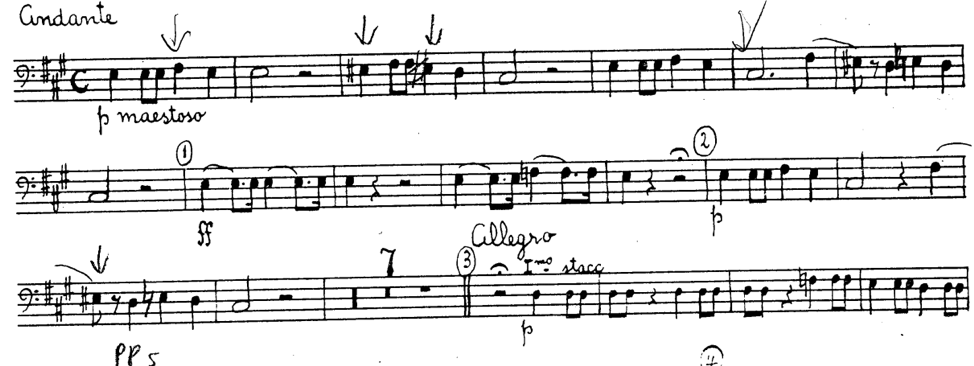 Andante
p maestoso
1 2
ff p
Allegro
7 3 Imo stacc
p
PP 5 4